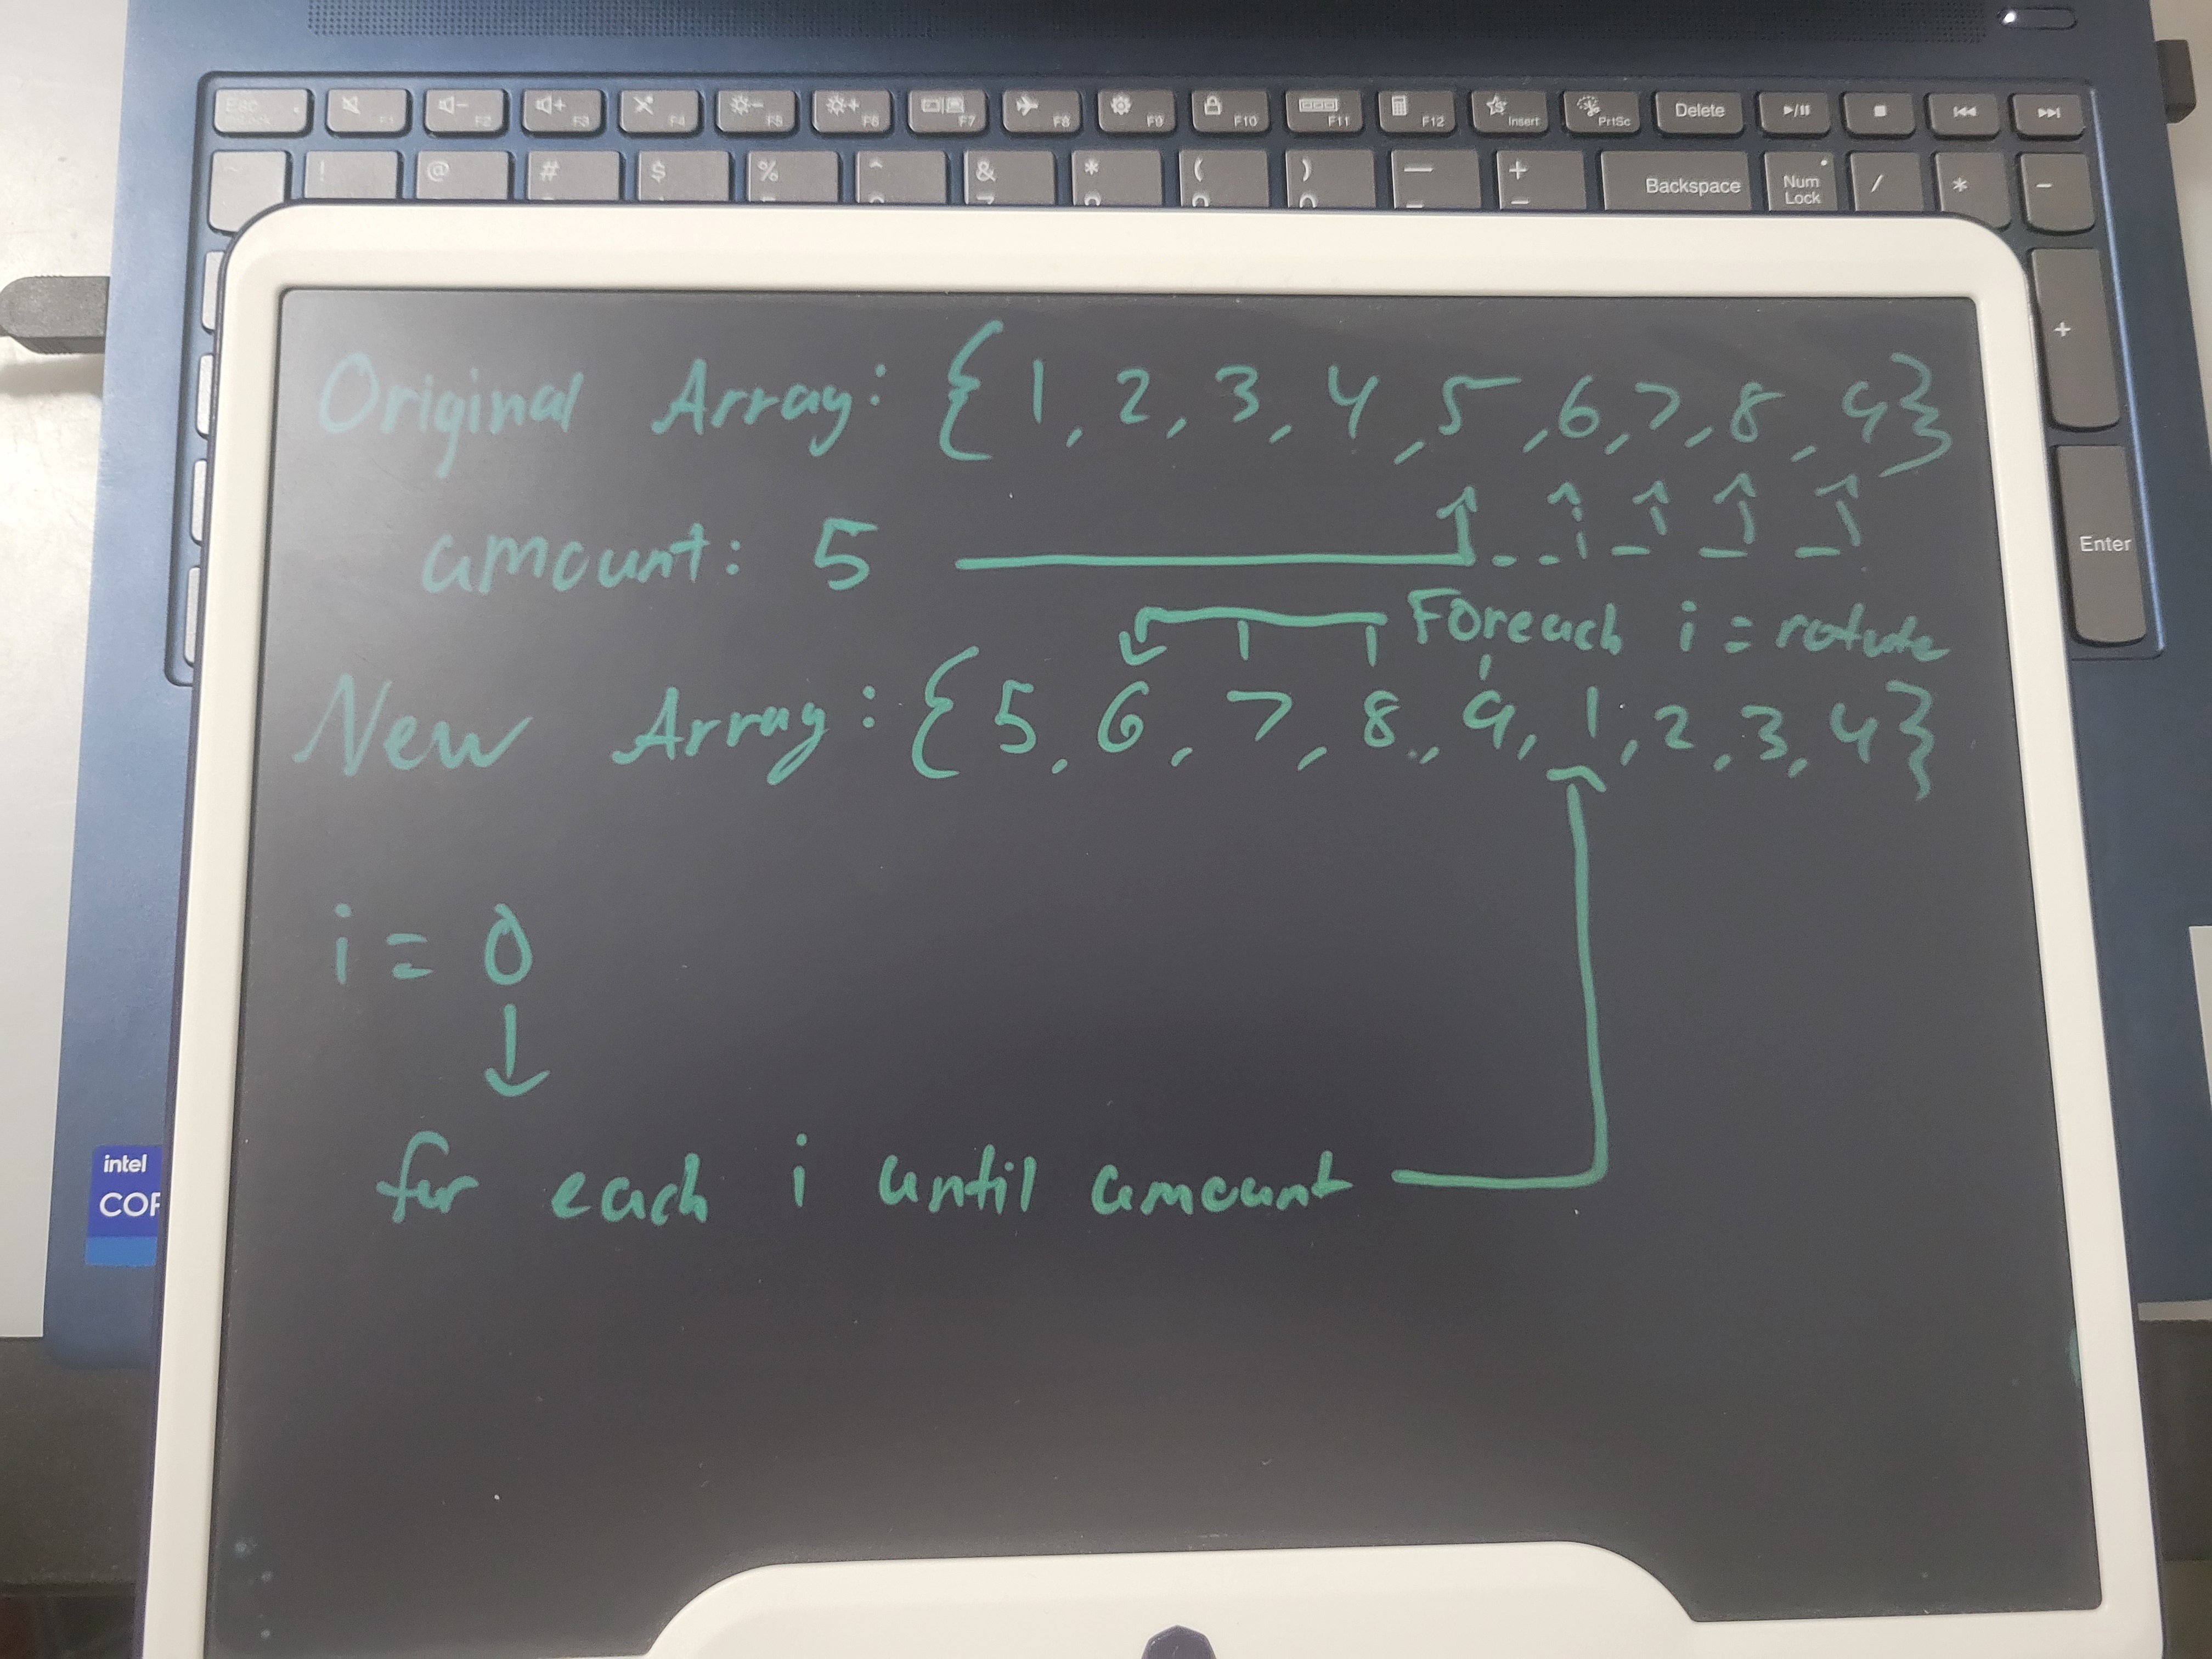 Esc
F1 F2 F3 F4 F5 F6 F7 F8 F9 F10 F11 F12 Insert PrtSc Delete
~ ! @ # $ % ^ & * ( ) — + Backspace Num Lock / * −
+
Enter
Original Array: {1, 2, 3, 4, 5, 6, 7, 8, 9}
amount: 5
Foreach i = rotate
New Array: {5, 6, 7, 8, 9, 1, 2, 3, 4}
i = 0
for each i until amount
intel
COR